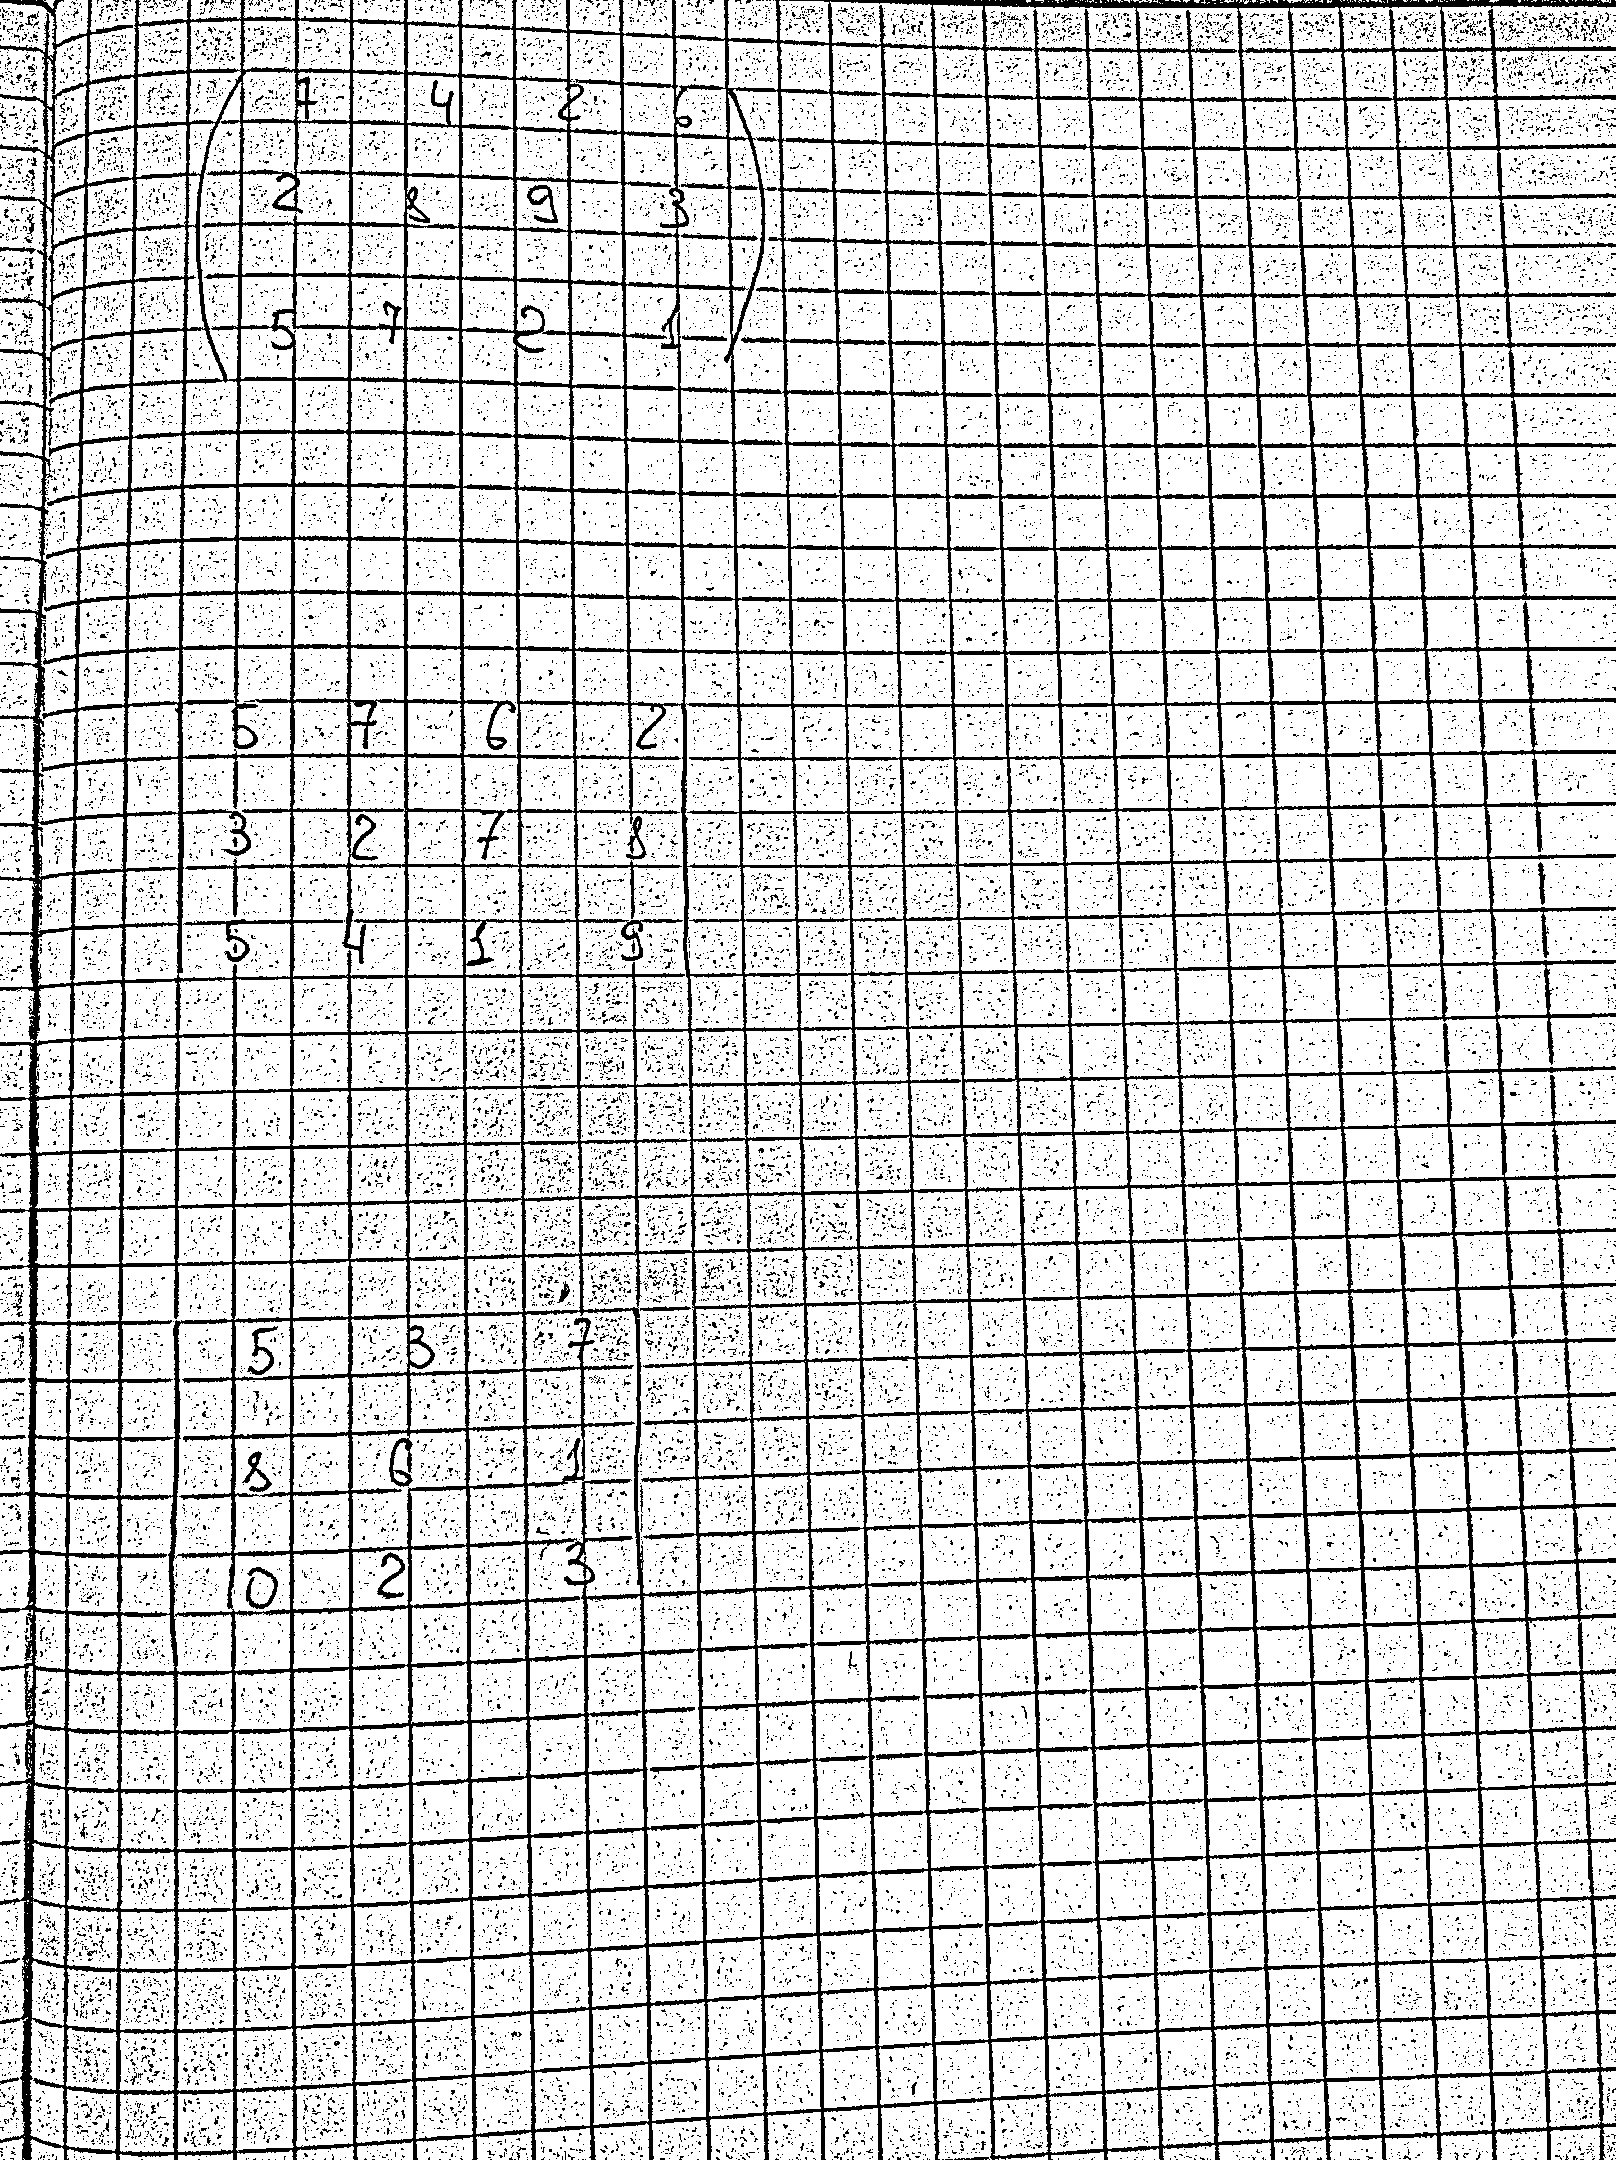 7 4 2 6
2 8 9 3
5 7 2 1
5 7 6 2
3 2 7 8
5 4 1 9
5 3 7
8 6 1
0 2 3